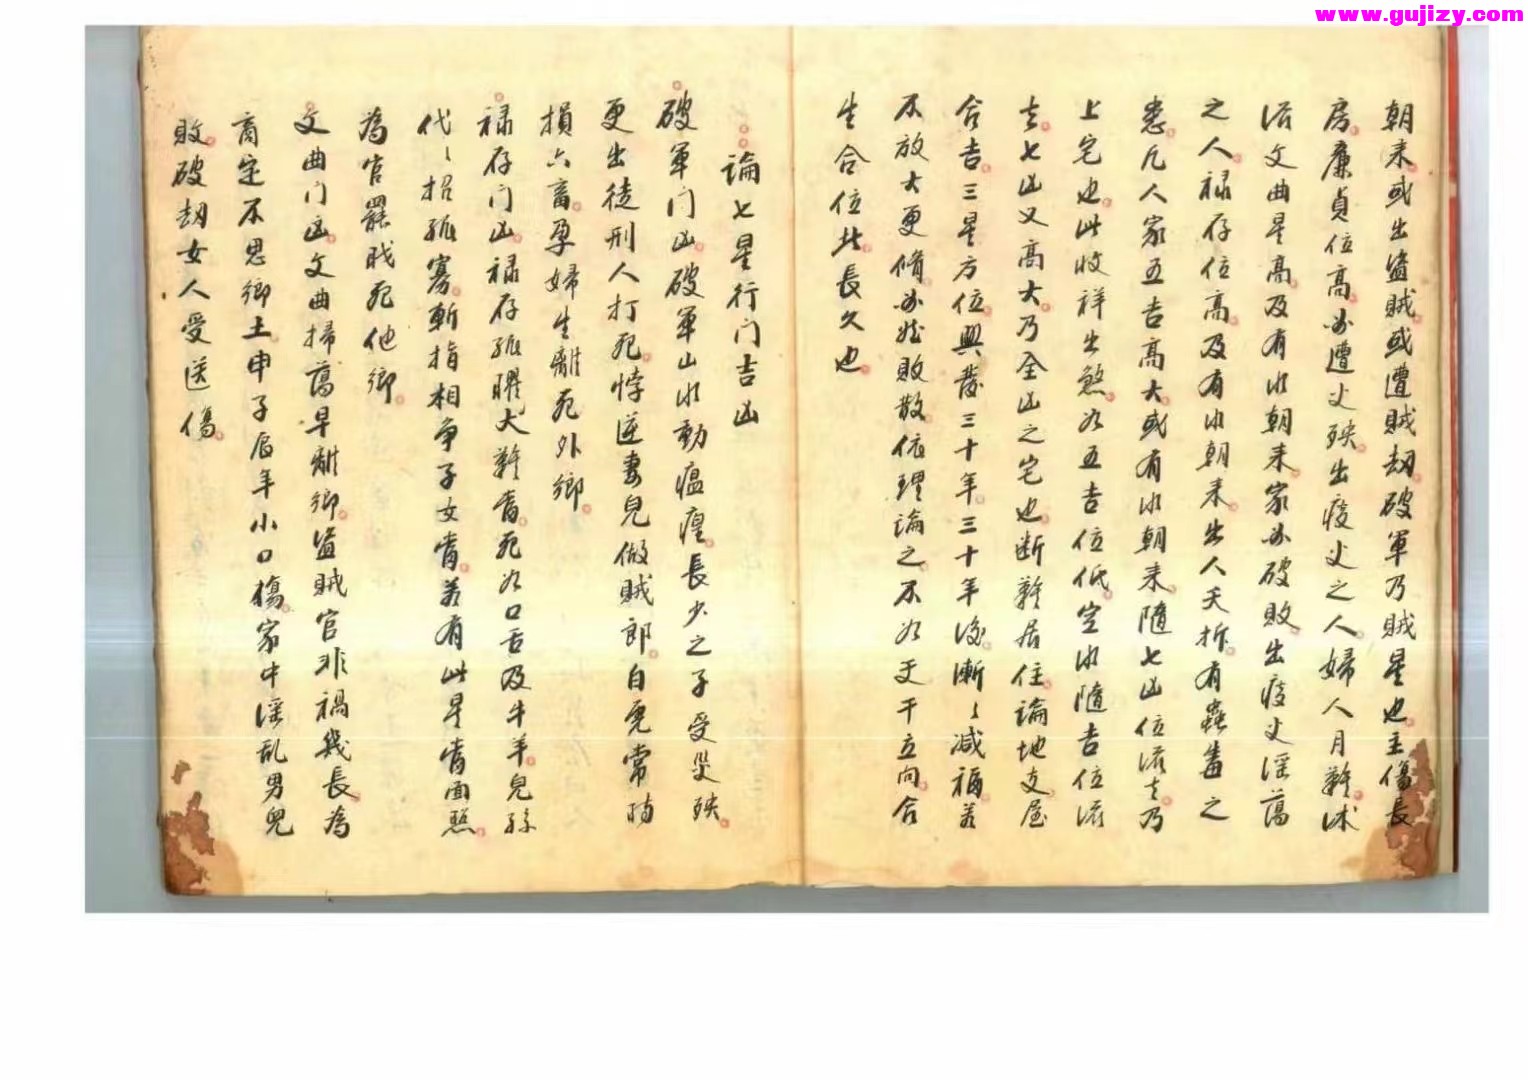 www.gujizy.com
朝来或出盗賊或遭賊刼破軍乃賊星也主傷長
房廉貞位高必遭丈殃出疫丈之人婦人月難沭
淫文曲星高及有水朝来家必破敗出疫丈淫蕩
之人禄存位高及有水朝来出人夭折有蟲毒之
患凡人家五吉高大或有水朝来隨七凶位流去乃
上宅也此收祥出煞如五吉位低空水隨吉位流
去七凶又高大乃全凶之宅也断難居住論地支屋
合吉三星方位興發三十年三十年後漸々減福若
不放大更脩必然敗散依理論之不如天干立向合
生合位此長久也
論七星行门吉凶
破軍门凶破軍山水動瘟㾮長少之子受災殃
更出徒刑人打死悖逆妻兒做賊郎自寃常
損六畜孕婦生離死外鄉
禄存门凶禄存孤曜犬難當死如口舌及牛羊兒孫
代々招孤寡斬指相争子女當若有此星當面照
為官罷戝死他鄉
文曲门凶文曲掃蕩早離鄉盗賊官非禍幾長為
商定不思鄉土申子辰年小口傷家中淫乱男兒
敗破刼女人受送傷